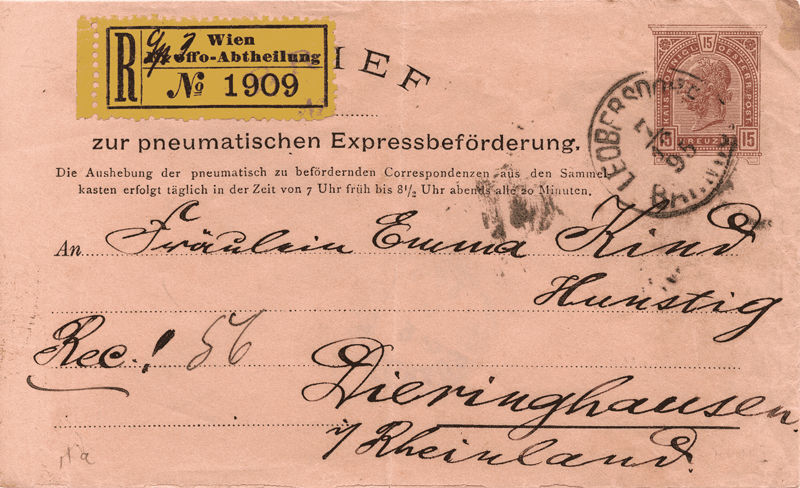 R
Wien
-Abtheilung
№ 1909
IEF
zur pneumatischen Expressbeförderung.
Die Aushebung der pneumatisch zu befördernden Correspondenzen aus den Sammel
kasten erfolgt täglich in der Zeit von 7 Uhr früh bis 8½ Uhr abends alle 20 Minuten.
15
KAIS. KÖNIGL. OESTERR. POST
15 KREUZER 15
LEOBERSDORF
An Fräulein Emma Kind
Hunstig
Rec! 56
Dieringhausen
i/Rheinland.